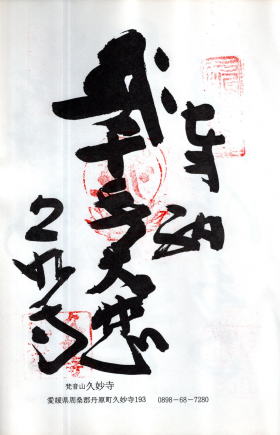 奉納
千手大悲
久妙寺
梵音山久妙寺
愛媛県周桑郡丹原町久妙寺193 0898-68-7280